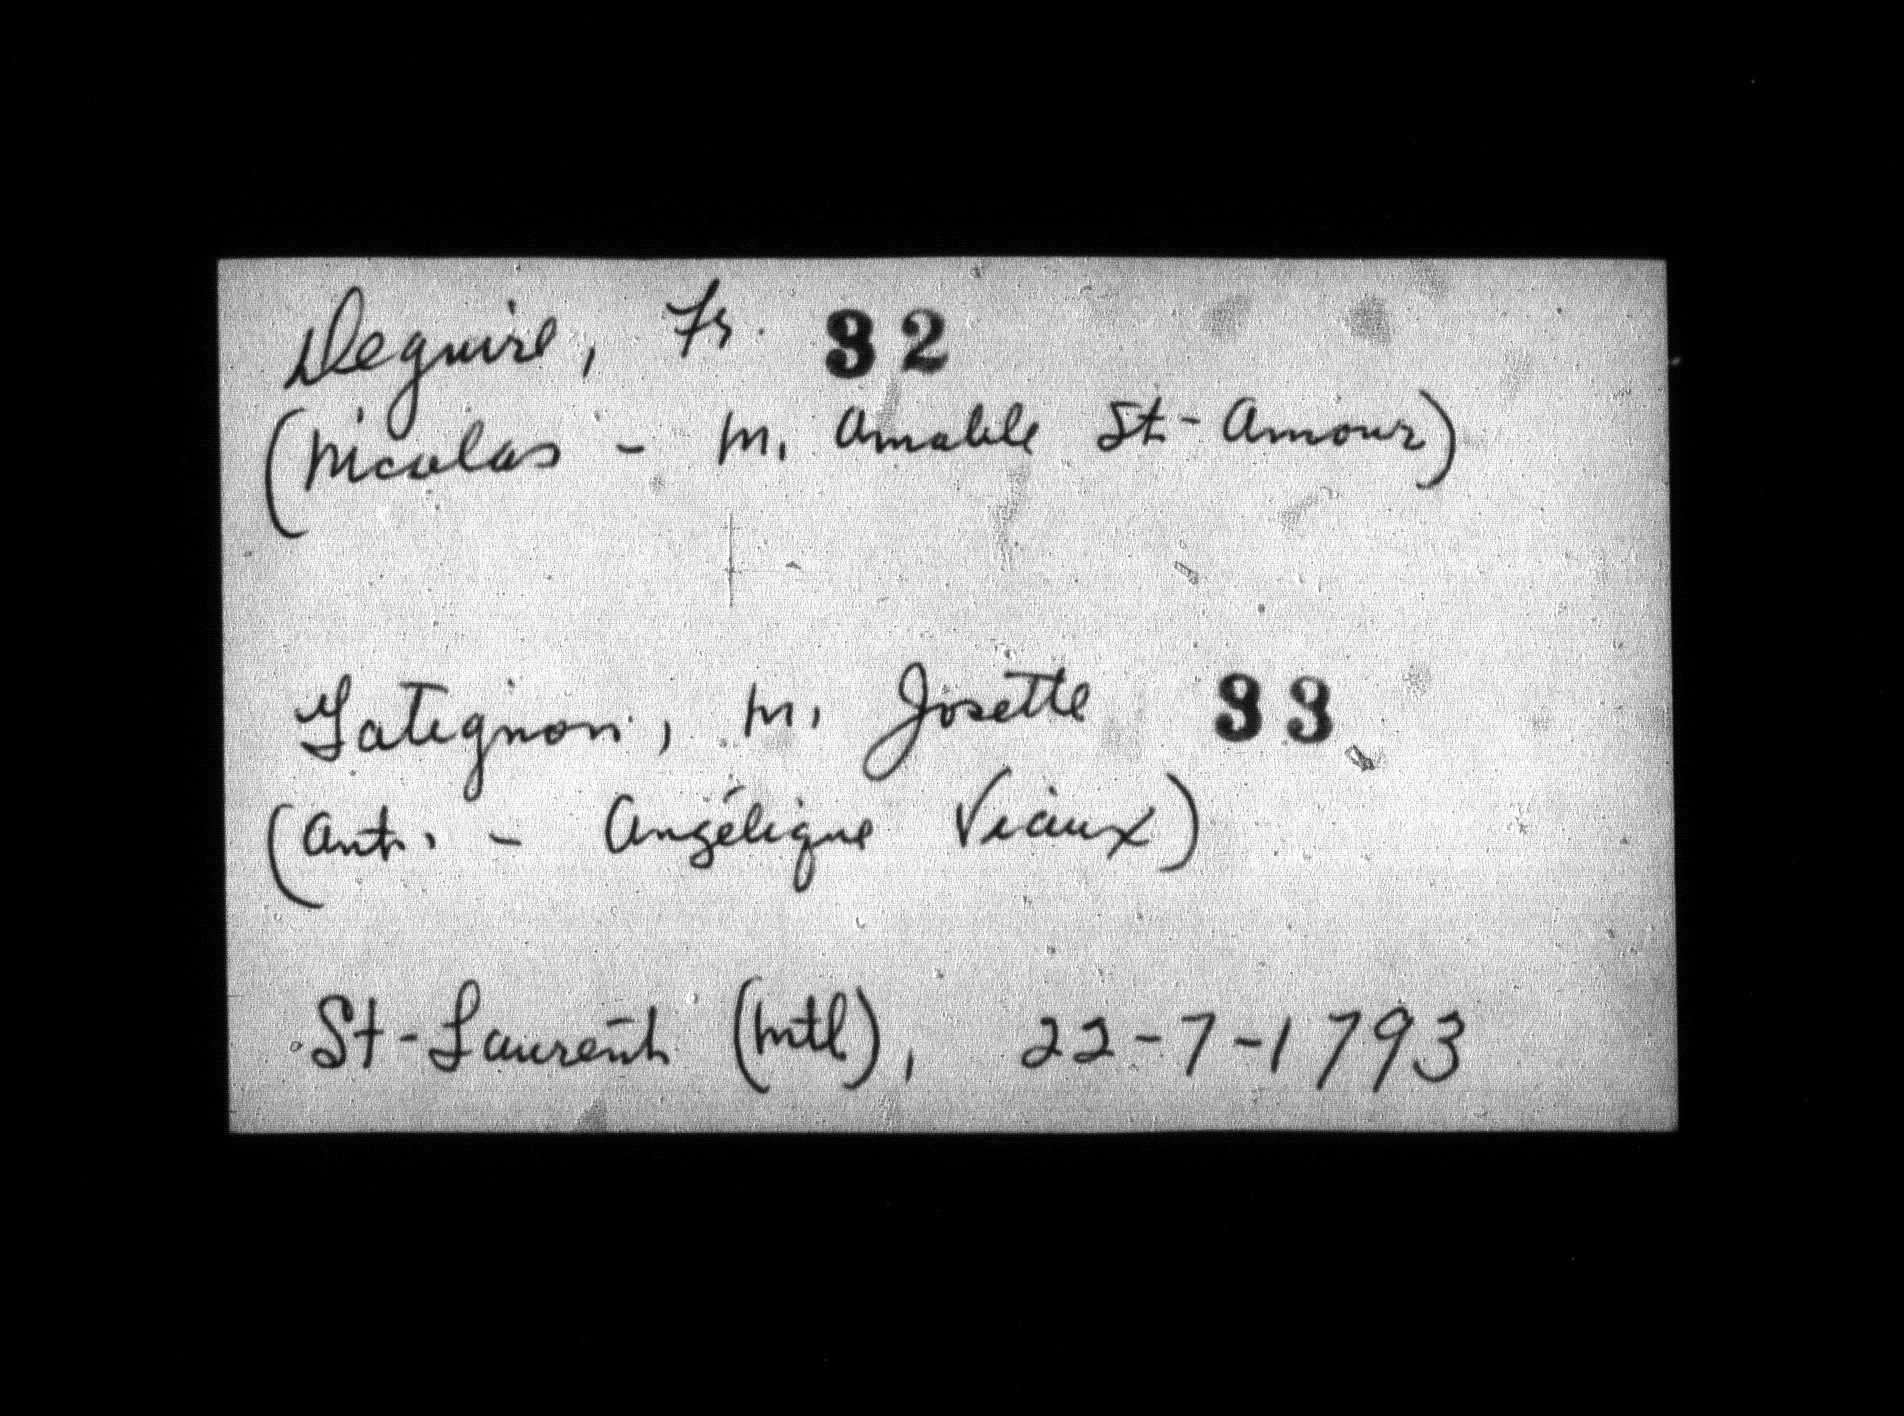 Deguire, Frs. 32
(Nicolas - M. Amable St-Amour)
Gatignon, M. Josette 33
(Ant. - Angélique Viaux)
St-Laurent (Mtl), 22-7-1793